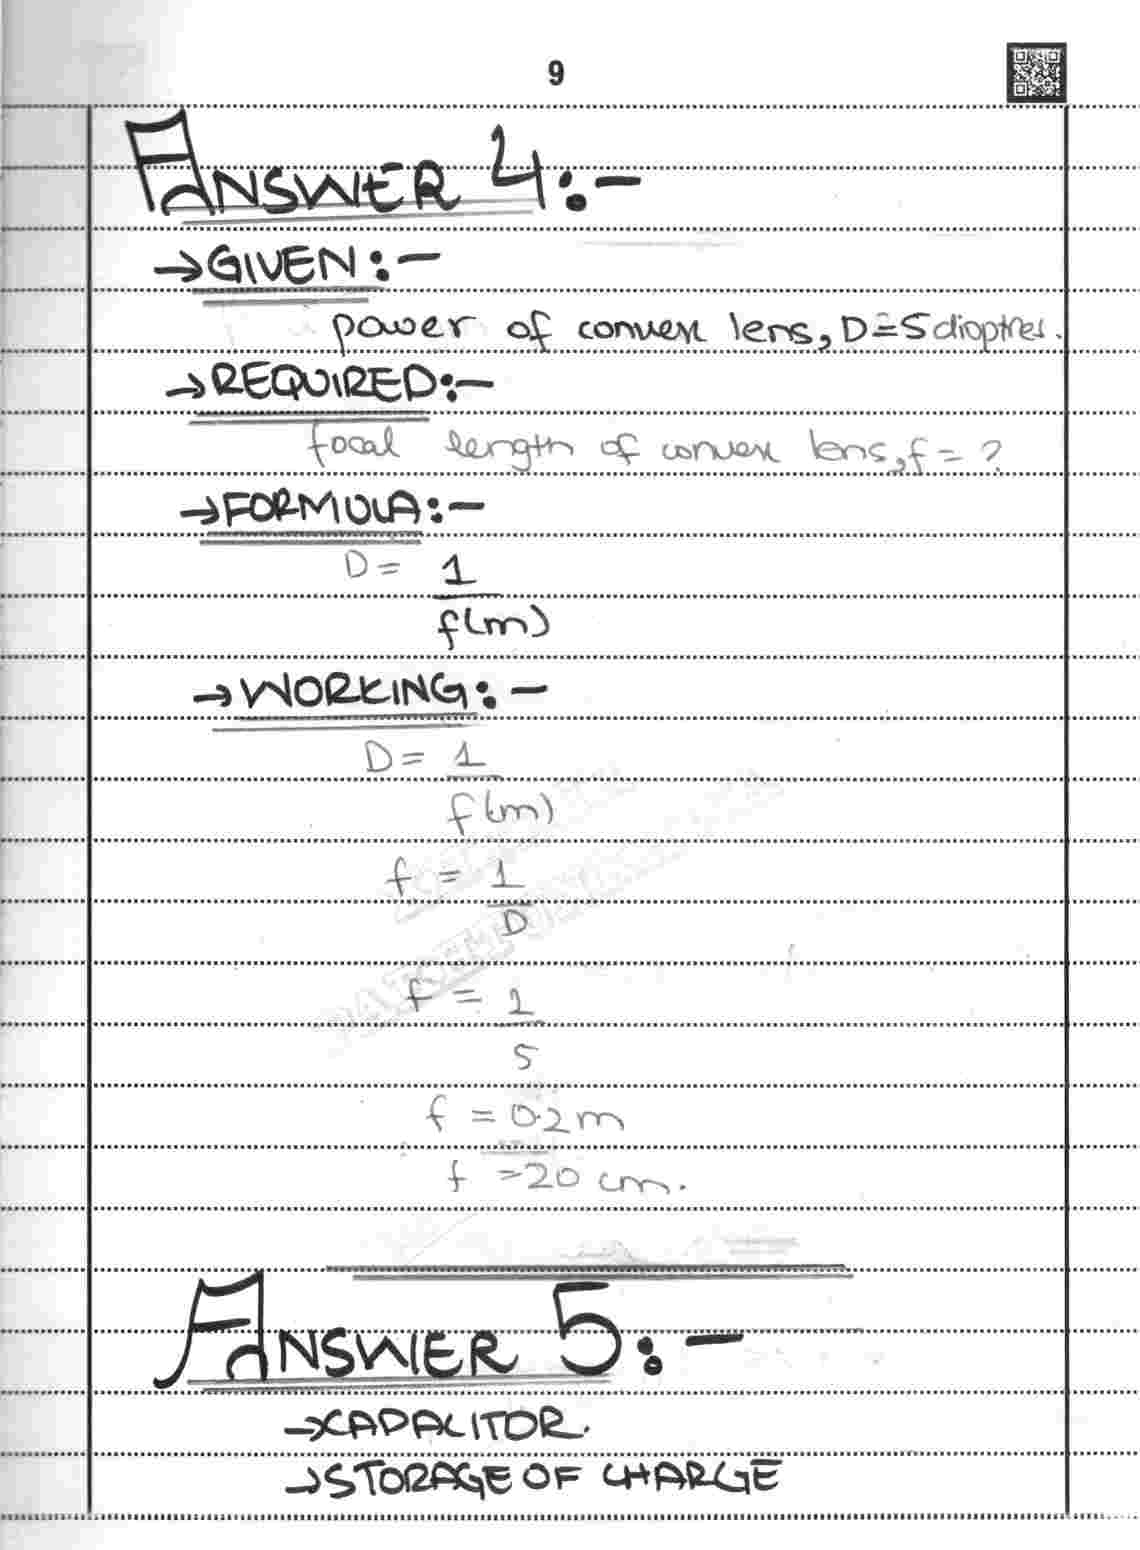 9
ANSWER 4:-
→GIVEN:-
power of convex lens, D=5 dioptres.
→REQUIRED:-
focal length of convex lens, f = ?
→FORMULA:-
D = 1
f(m)
→WORKING:-
D = 1
f(m)
f = 1
D
f = 1
5
f = 0.2m
f = 20 cm.
ANSWER 5:-
→CAPACITOR.
→STORAGE OF CHARGE